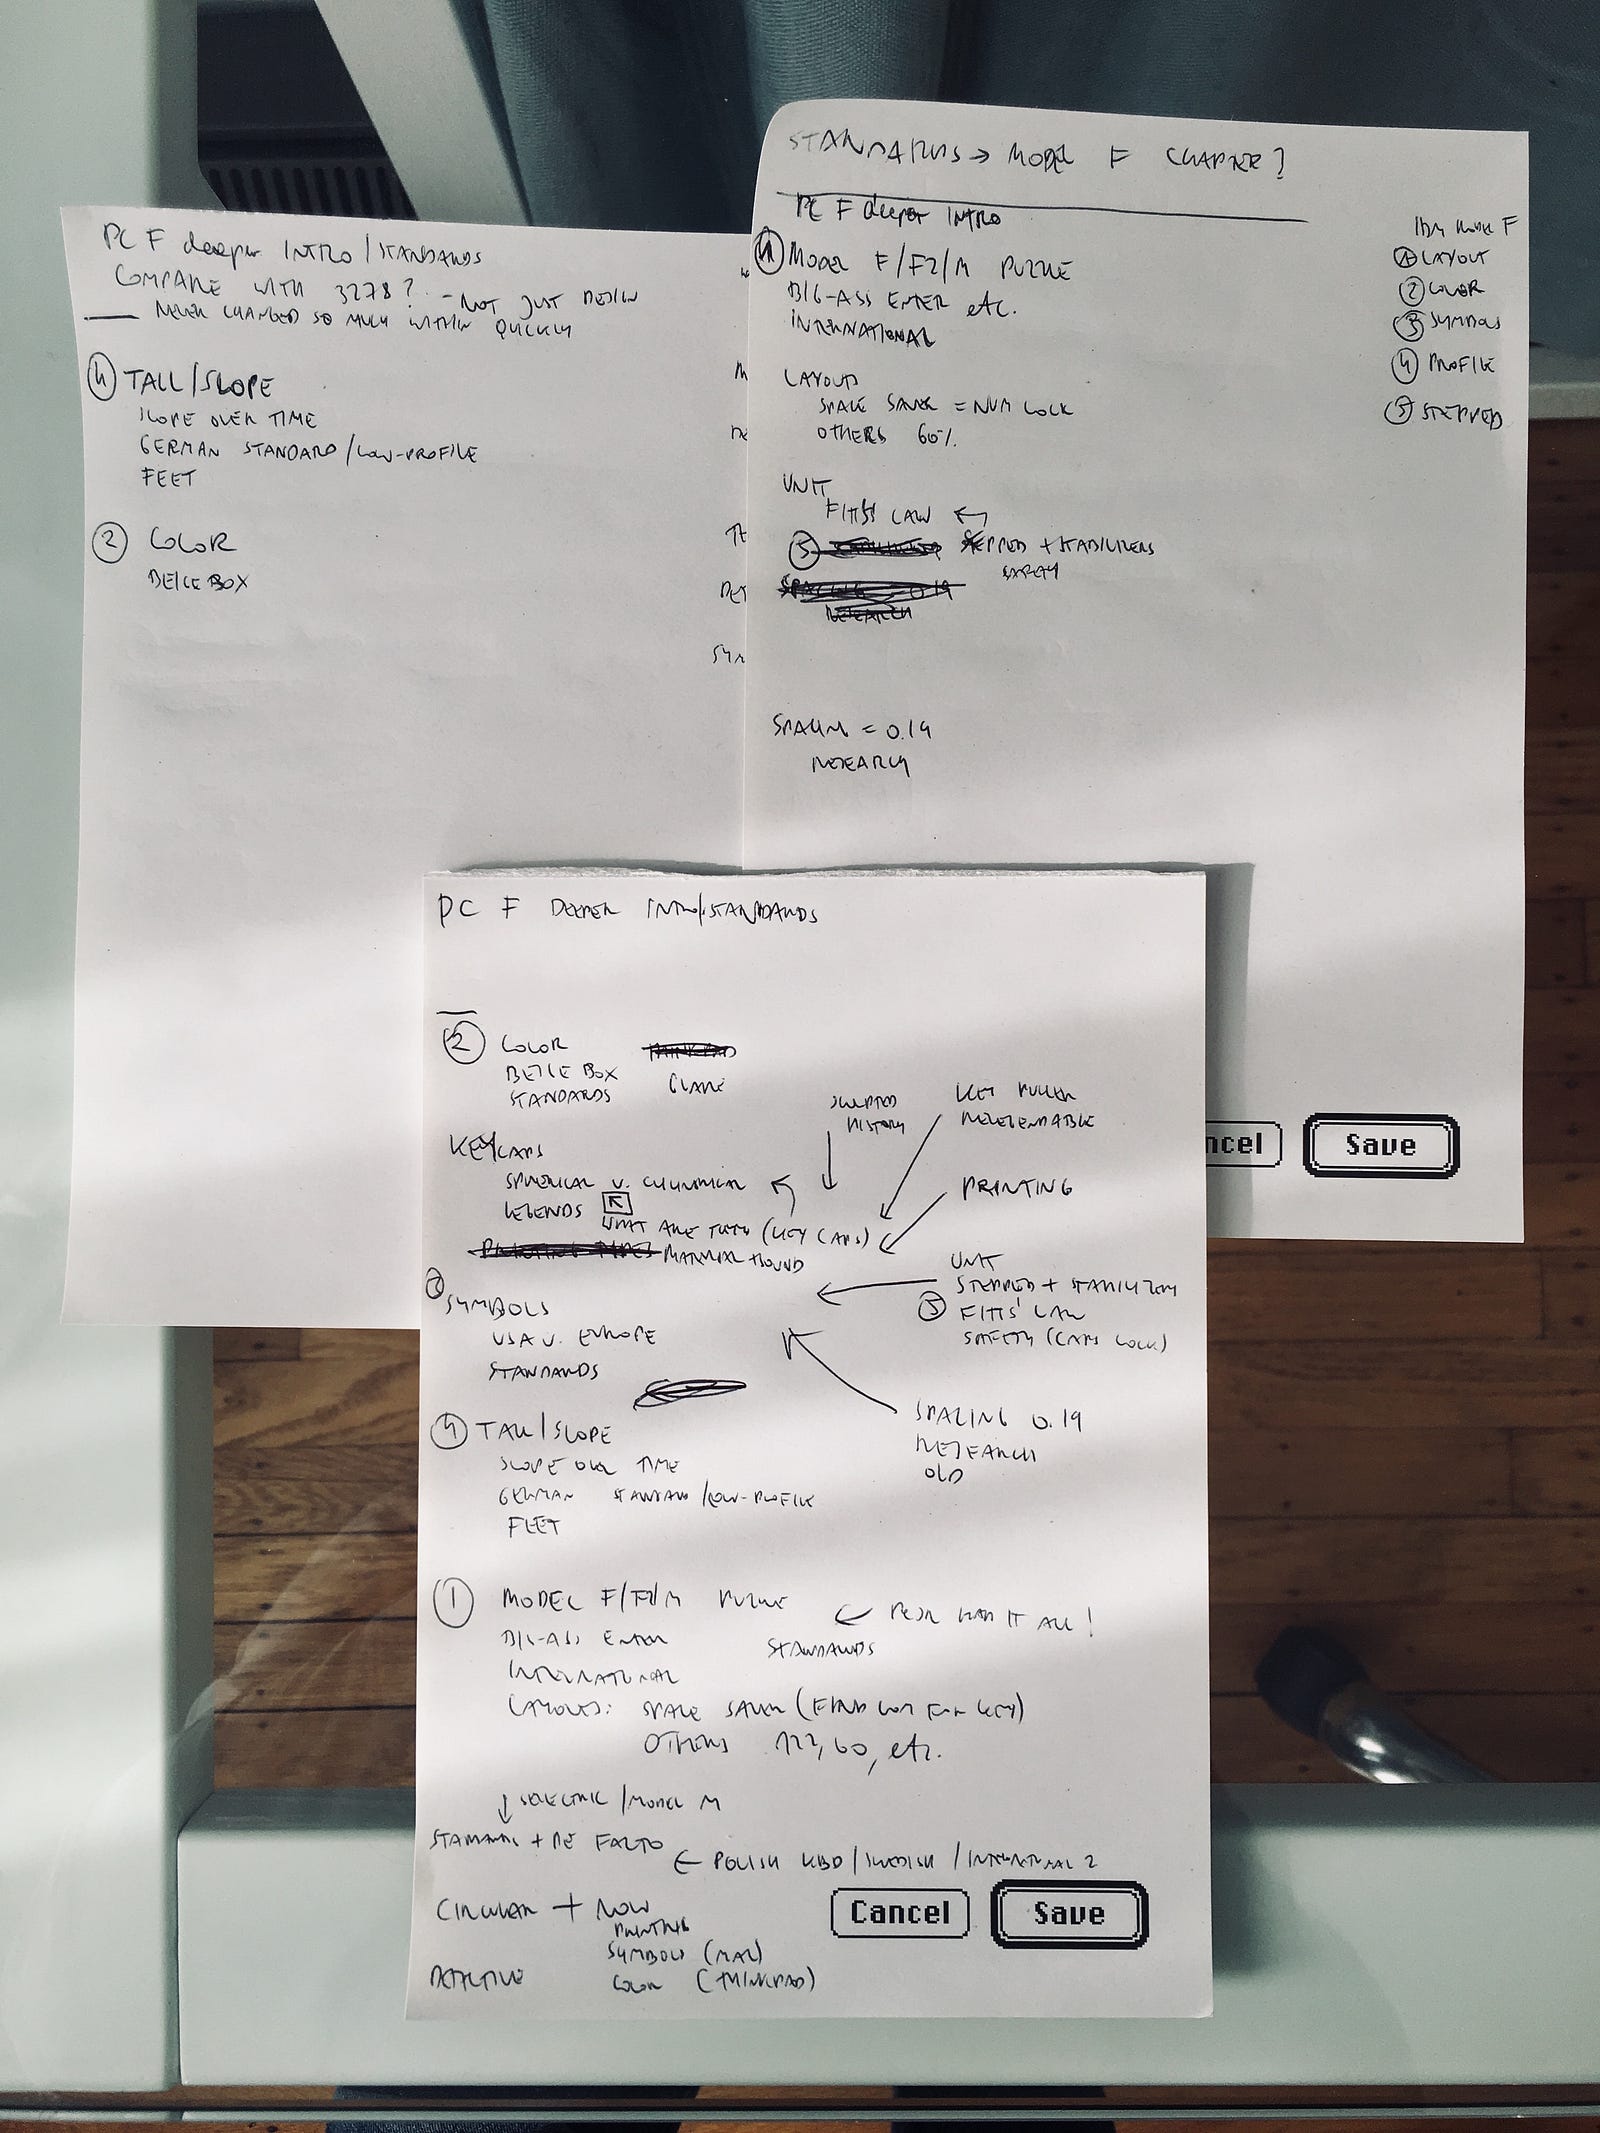 PC F deeper INTRO/STANDARDS
COMPARE WITH 3278? - NOT JUST DESIGN
NEVER CHANGED SO MUCH WITHIN QUICKLY
4 TALL/SLOPE
SLOPE OVER TIME
GERMAN STANDARD/LOW-PROFILE
FEET
2 COLOR
BEIGE BOX
STANDARDS → MODEL F CHAPTER?
PC F deeper INTRO
1 MODEL F/F2/M PUZZLE
BIG-ASS ENTER etc.
INTERNATIONAL
LAYOUTS
SPACE SAVER = NUM LOCK
OTHERS 60%
UNIT
FITTS' LAW ←
5 STEPPED + STABILIZERS
SPACING = 0.19
RESEARCH
SPACING = 0.19
RESEARCH
IBM MODEL F
1 LAYOUT
2 COLOR
3 SYMBOLS
4 PROFILE
5 STEPPED
ncel
Save
PC F DEEPER INTRO/STANDARDS
2 COLOR THINKPAD
BEIGE BOX GLARE
STANDARDS
SCULPTED
HISTORY
KEY PULLER
RELEGENDABLE
KEYCAPS
SPHERICAL V. CYLINDRICAL
LEGENDS
WHAT ARE THEY (KEY CAPS)
PRINTING TYPES
PRINTING
3 SYMBOLS
USA V. EUROPE
STANDARDS
UNIT
STEPPED + STABILIZERS
5 FITTS' LAW
SAFETY (CAPS LOCK)
4 TALL/SLOPE
SLOPE OVER TIME
GERMAN STANDARD/LOW-PROFILE
FEET
SPACING 0.19
RESEARCH
OLD
1 MODEL F/F2/M PUZZLE
← PCJR HAD IT ALL!
BIG-ASS ENTER
STANDARDS
INTERNATIONAL
LAYOUTS: SPACE SAVER
OTHERS 122, 60, etc.
↓ SELECTRIC/MODEL M
STANDARDS + DE FACTO
← POLISH KBD/SWEDISH/INTERNATIONAL 2
CIRCULAR + NOW
PRINTING
SYMBOLS (MAC)
DEFECTIVE COLOR (THINKPAD)
Cancel
Save